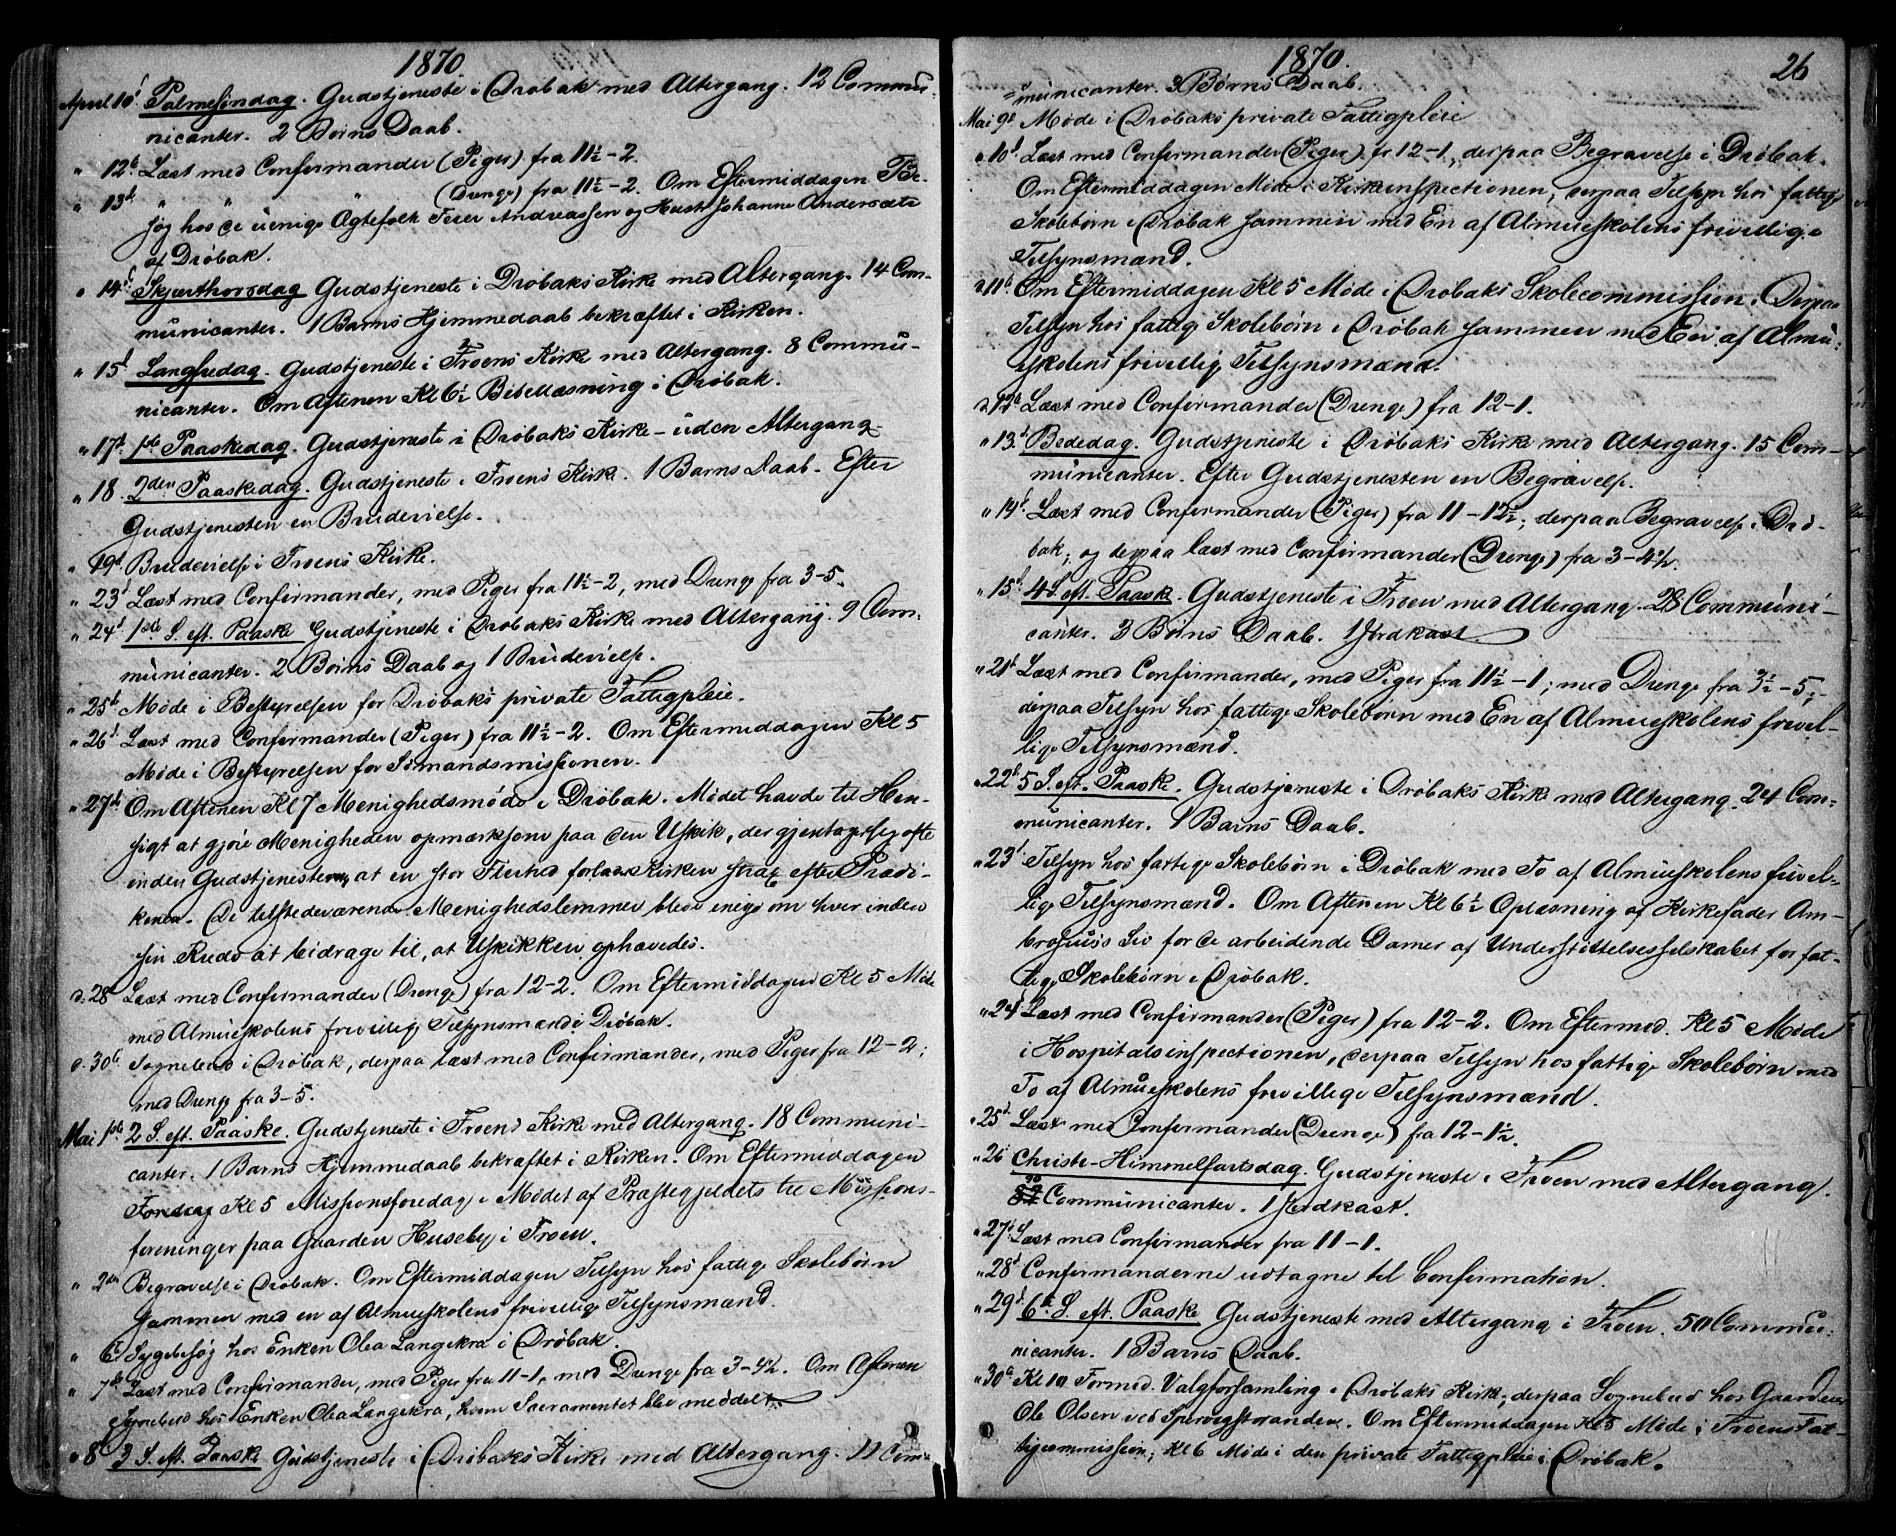 1870.
April 10d Palmesøndag. Gudstjeneste i Drøbak med Altergang. 12 Commu-
nicanter. 2 Børns Daab.
" 12d Læst med Confirmander (Piger) fra 11½-2.
" 13d " " " (Drenge) fra 11½-2. Om Eftermiddagen Be-
søg hos de uenige Ægtefolk Peter Andreassen og Hust. Johanne Andersdtr
af Drøbak.
" 14d Skjærthorsdag Gudstjeneste i Drøbaks Kirke med Altergang. 14 Com-
municanter. 1 Barns Hjemmedaab bekræftet i Kirken.
" 15d Langfredag. Gudstjeneste i Froens Kirke med Altergang. 8 Commu-
nicanter. Om Aftenen Kl 6½ Bibellæsning i Drøbak.
" 17d 1ste Paaskedag. Gudstjeneste i Drøbaks Kirke - uden Altergang.
" 18. 2den Paaskedag. Gudstjeneste i Froens Kirke. 1 Barns Daab. Efter
Gudstjenesten en Brudevielse.
" 19d Brudevielse i Froens Kirke.
" 23d Læst med Confirmander, med Piger fra 11½-2, med Drenge fra 3-5.
" 24d 1ste S. eft. Paaske Gudstjeneste i Drøbaks Kirke med Altergang. 9 Com-
municanter. 2 Børns Daab og 1 Brudevielse.
" 25d Møde i Bestyrelsen for Drøbaks private Fattigpleie.
" 26d Læst med Confirmander (Piger) fra 11½-2. Om Eftermiddagen Kl 5
Møde i Bestyrelsen for Sømandsmissionen.
" 27d Om Aftenen Kl 7 Menighedsmøde i Drøbak. Mødet havde til Hen-
sigt at gjøre Menigheden opmærksom paa den Uskik, der gjentager sig ofte
inden Gudstjenesterne, at en stor Flerhed forlader Kirken strax efter Prædi-
kenen. De tilstedeværende Menighedslemmer bleve enige om hver inden
sin Kreds at bidrage til, at Uskikken ophævedes.
" 28 Læst med Confirmander (Drenge) fra 12-2. Om Eftermiddagen Kl 5 Møde
med Almueskolens frivillige Tilsynsmænd i Drøbak.
" 30d Sognebud i Drøbak, derpaa læst med Confirmander, med Piger fra 12-2;
med Drenge fra 3-5.
Mai 1ste 2 S. eft. Paaske. Gudstjeneste i Froens Kirke med Altergang. 18 Communi-
canter. 1 Barns Hjemmedaab bekræftet i Kirken. Om Eftermiddagen
Foredrag Kl 5 Missionsforedrag i Mødet af Præstegjeldets til Missions-
foreninger paa Gaarden Huseby i Froen.
" 2den Begravelse i Drøbak. Om Eftermiddagen Tilsyn hos fattige Skolebørn
sammen med en af Almueskolens frivillige Tilsynsmænd.
" 6d Sygebesøg hos Enken Olea Langekra i Drøbak.
" 7d Læst med Confirmander, med Piger fra 11-1, med Drenge fra 3-4½. Om Aftenen
Sognebud hos Enken Olea Langekra, hvem Sacramentet blev meddelt.
" 8d 3 S. eft. Paaske Gudstjeneste i Drøbaks Kirke med Altergang. 11 Com-
1870. 26
municanter. 3 Børns Daab.
Mai 9d Møde i Drøbaks private Fattigpleie
" 10d Læst med Confirmander (Piger) fr 12-1, derpaa Begravelse i Drøbak.
Om Eftermiddagen Møde i Kirkeinspectionen, derpaa Tilsyn hos fattige
Skolebørn i Drøbak sammen med En af Almueskolens frivillige
Tilsynsmænd.
" 11d Om Eftermiddagen Kl 5 Møde i Drøbaks Skolecommission. Derpaa
Tilsyn hos fattige Skolebørn i Drøbak sammen med En af Almu-
eskolens frivillige Tilsynsmænd.
" 12d Læst med Confirmander (Drenge) fra 12-1.
" 13d Bededag. Gudstjeneste i Drøbaks Kirke med Altergang. 15 Com-
municanter. Efter Gudstjenesten en Begravelse.
" 14d Læst med Confirmander (Piger) fra 11-12½; derpaa Begravelse i Drø-
bak; og derpaa læst med Confirmander (Drenge) fra 3-4½.
" 15d 4 S. eft. Paaske. Gudstjeneste i Froen med Altergang. 28 Communi-
canter. 3 Børns Daab. 1 Jordkast.
" 21d Læst med Confirmander, med Piger fra 11½-1; med Drenge fra 3½-5;
derpaa Tilsyn hos fattige Skolebørn med En af Almueskolens frivil-
lige Tilsynsmænd.
" 22d 5 S. eft. Paaske. Gudstjeneste i Drøbaks Kirke med Altergang. 24 Com-
municanter. 1 Barns Daab.
" 23d Tilsyn hos fattige Skolebørn i Drøbak med To af Almueskolens frivil-
lige Tilsynsmænd. Om Aftenen Kl 6½ Oplæsning af Kirkefader Am-
brosius's Liv for de arbeidende Damer af Understøttelsesselskabet for fat-
tige Skolebørn i Drøbak.
" 24d Læst med Confirmander (Piger) fra 12-2. Om Eftermid. Kl 5 Møde
i Hospitalsinspectionen, derpaa Tilsyn hos fattige Skolebørn med
To af Almueskolens frivillige Tilsynsmænd.
" 25d Læst med Confirmander (Drenge) fra 12-1½.
" 26 Christi-Himmelfartsdag. Gudstjeneste i Froen med Altergang.
Communicanter. 1 Jordkast.
" 27d Læst med Confirmander fra 11-1.
" 28d Confirmanderne udtagne til Confirmation.
" 29d 6te S. eft. Paaske Gudstjeneste med Altergang i Froen. 50 Commu-
nicanter. 1 Barns Daab.
" 30d Kl 10 Formid. Valgforsamling i Drøbaks Kirke; derpaa Sognebud hos
Ole Olsen ved Spervigstranden. Om Eftermiddagen Kl 5 Møde i Froens Fat-
tigcommission; Kl 6 Møde i den private Fattigpleie i Drøbak.